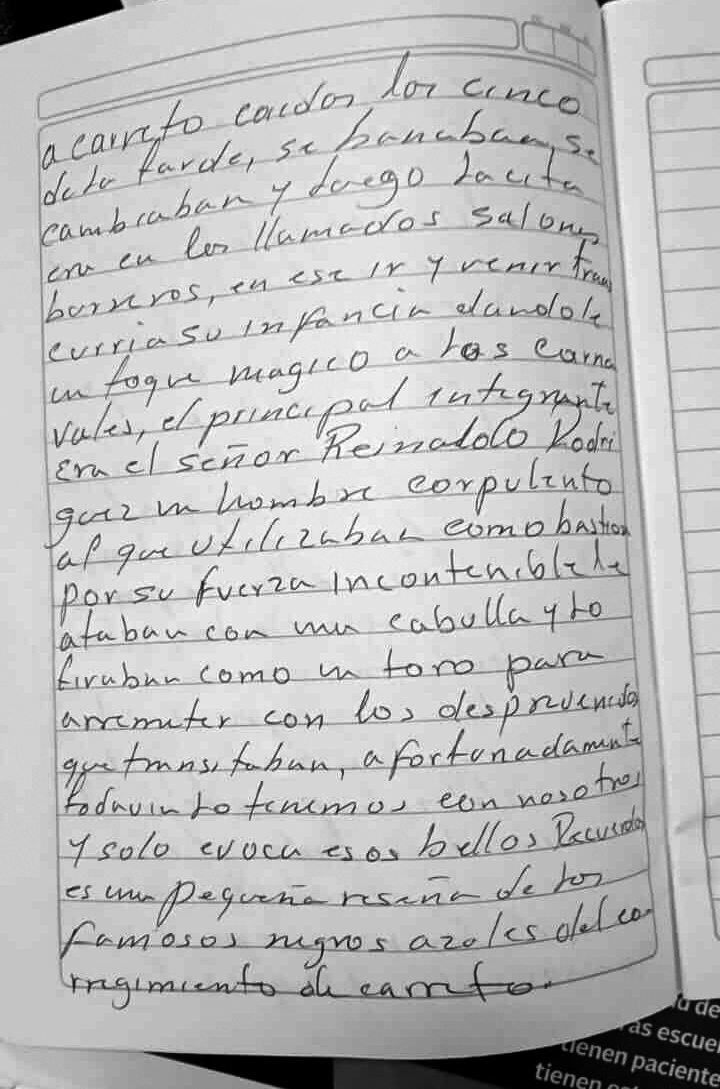 a carreto caidos los cinco
de la tarde, se bañaban, se
cambiaban y luego la cita
era en los llamados salones
burreros, en ese ir y venir trans
curria su infancia dandole
un toque magico a los carna
vales, el principal integrante
Era el señor Reinaldo Rodri
guez un hombre corpulento
al que utilizaban como bastion
por su fuerza incontenible le
ataban con una cabulla y lo
tiraban como un toro para
arremeter con los desprevenidos
que transitaban, afortunadamente
todavia lo tenemos con nosotros
y solo evoca esos bellos Recuerdos
es una pequeña reseña de los
famosos negros azoles del co-
rregimiento de carreto.
as escue
tienen paciente
tienen